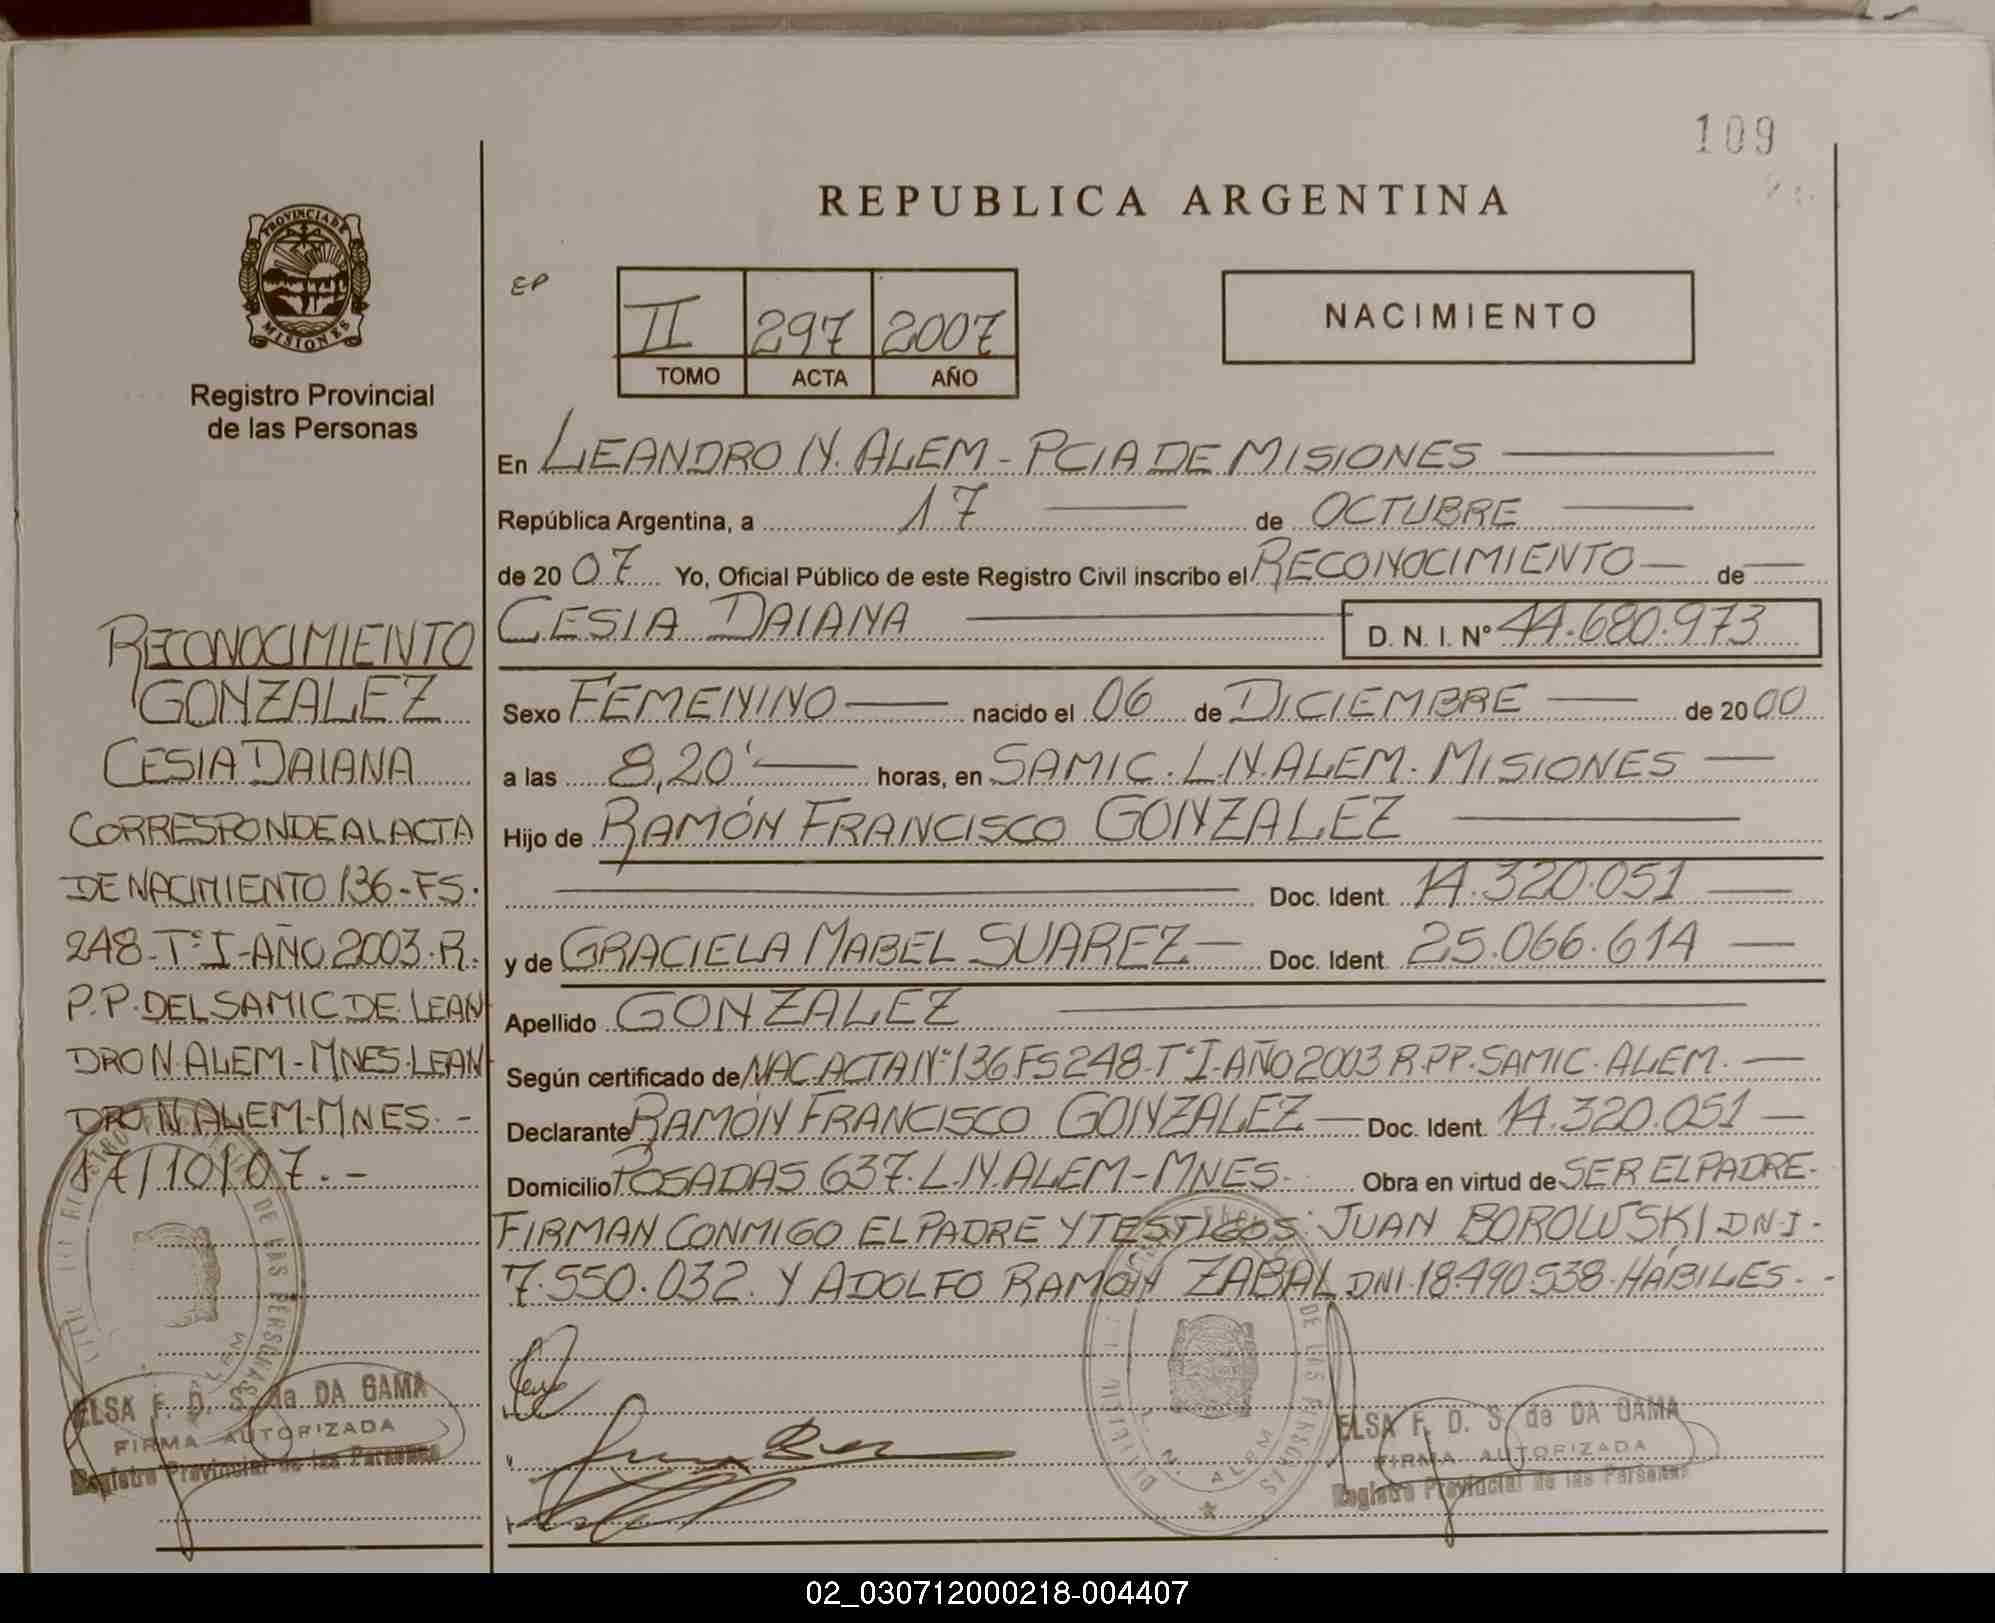 109
REPUBLICA ARGENTINA
PROVINCIA DE
MISIONES
Registro Provincial
de las Personas
EP
II 297 2007
TOMO ACTA AÑO
NACIMIENTO
En LEANDRO N. ALEM - PCIA DE MISIONES
República Argentina, a 17 de OCTUBRE
de 2007 Yo, Oficial Público de este Registro Civil inscribo el RECONOCIMIENTO de
CESIA DAIANA D. N. I. Nº 44.680.973
Sexo FEMENINO nacido el 06 de DICIEMBRE de 2000
a las 8,20' horas, en SAMIC. L.N. ALEM. MISIONES
Hijo de RAMÓN FRANCISCO GONZALEZ
Doc. Ident. 14.320.051
y de GRACIELA MABEL SUAREZ Doc. Ident. 25.066.614
Apellido GONZALEZ
Según certificado de NAC. ACTA Nº 136 FS 248 - Tº I - AÑO 2003 R.PP. SAMIC. ALEM.
Declarante RAMÓN FRANCISCO GONZALEZ Doc. Ident. 14.320.051
Domicilio POSADAS 637. L.N. ALEM - MNES. Obra en virtud de SER EL PADRE.
FIRMAN CONMIGO EL PADRE Y TESTIGOS: JUAN BOROWSKI DNI.
7.550.032. Y ADOLFO RAMÓN ZABAL DNI. 18.490.538. HÁBILES. -
RECONOCIMIENTO
GONZALEZ
CESIA DAIANA
CORRESPONDE AL ACTA
DE NACIMIENTO 136 - FS.
248 - Tº I - AÑO 2003. R.
P.P. DEL SAMIC DE LEAN
DRO N. ALEM - MNES. LEAN
DRO N. ALEM - MNES. -
17/10/07. -
DE LAS PERSONAS
ALEM
ELSA F. D. S. de DA GAMA
FIRMA AUTORIZADA
Registro Provincial de las Personas
DE LAS PERSONAS
L. N. ALEM
ELSA F. D. S. de DA GAMA
FIRMA AUTORIZADA
Registro Provincial de las Personas
02_030712000218-004407